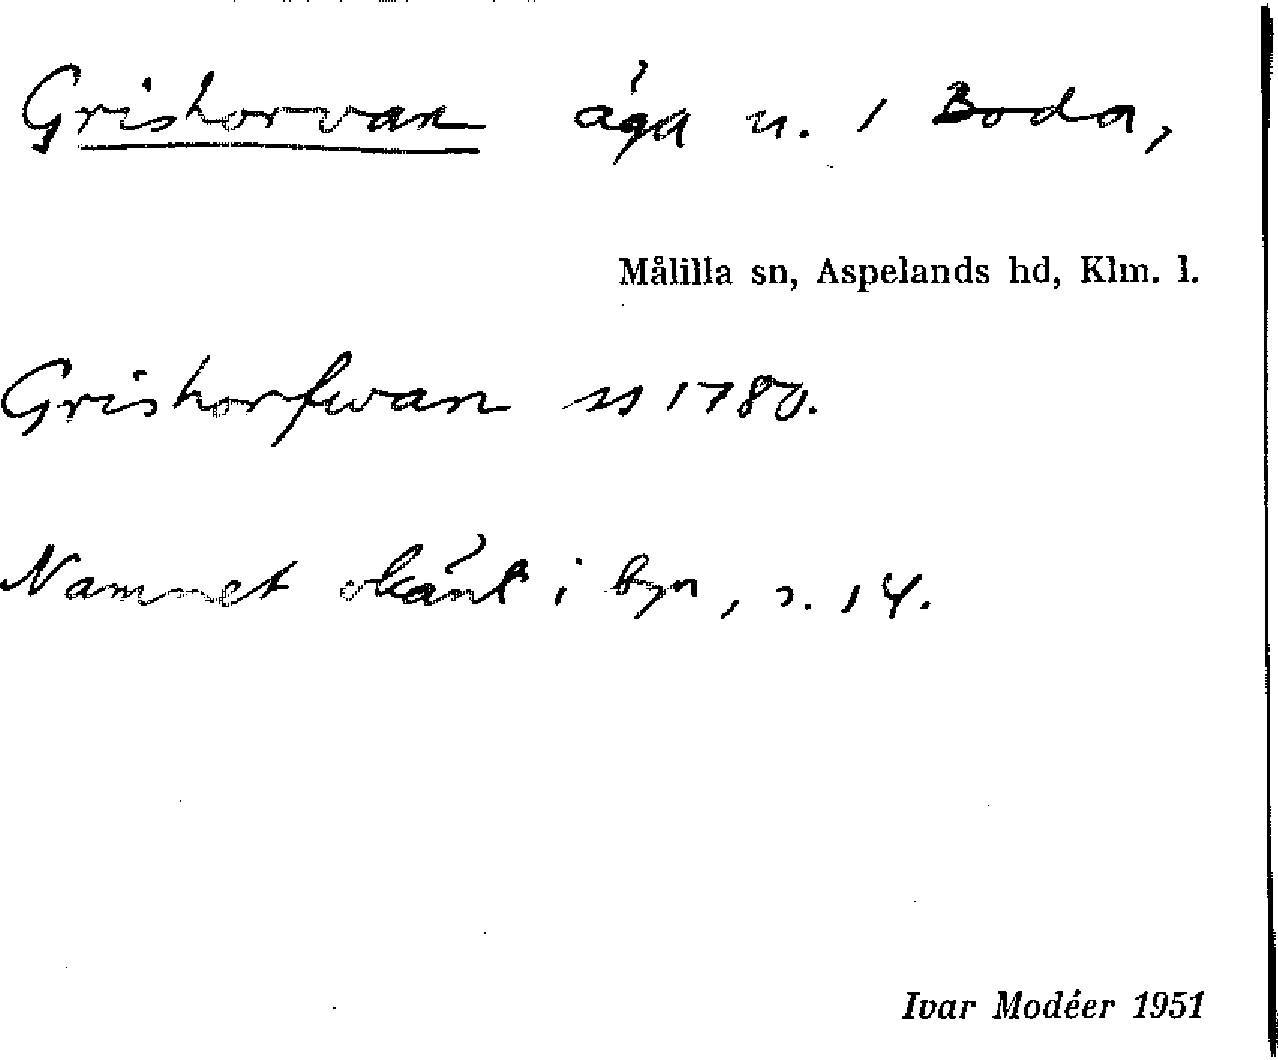 Grishorvan äga n. 1 Boda,
Målilla sn, Aspelands hd, Klm. l.
Grishorfwan ss 1780.
Namnet okänt i byn, s. 14.
Ivar Modéer 1951